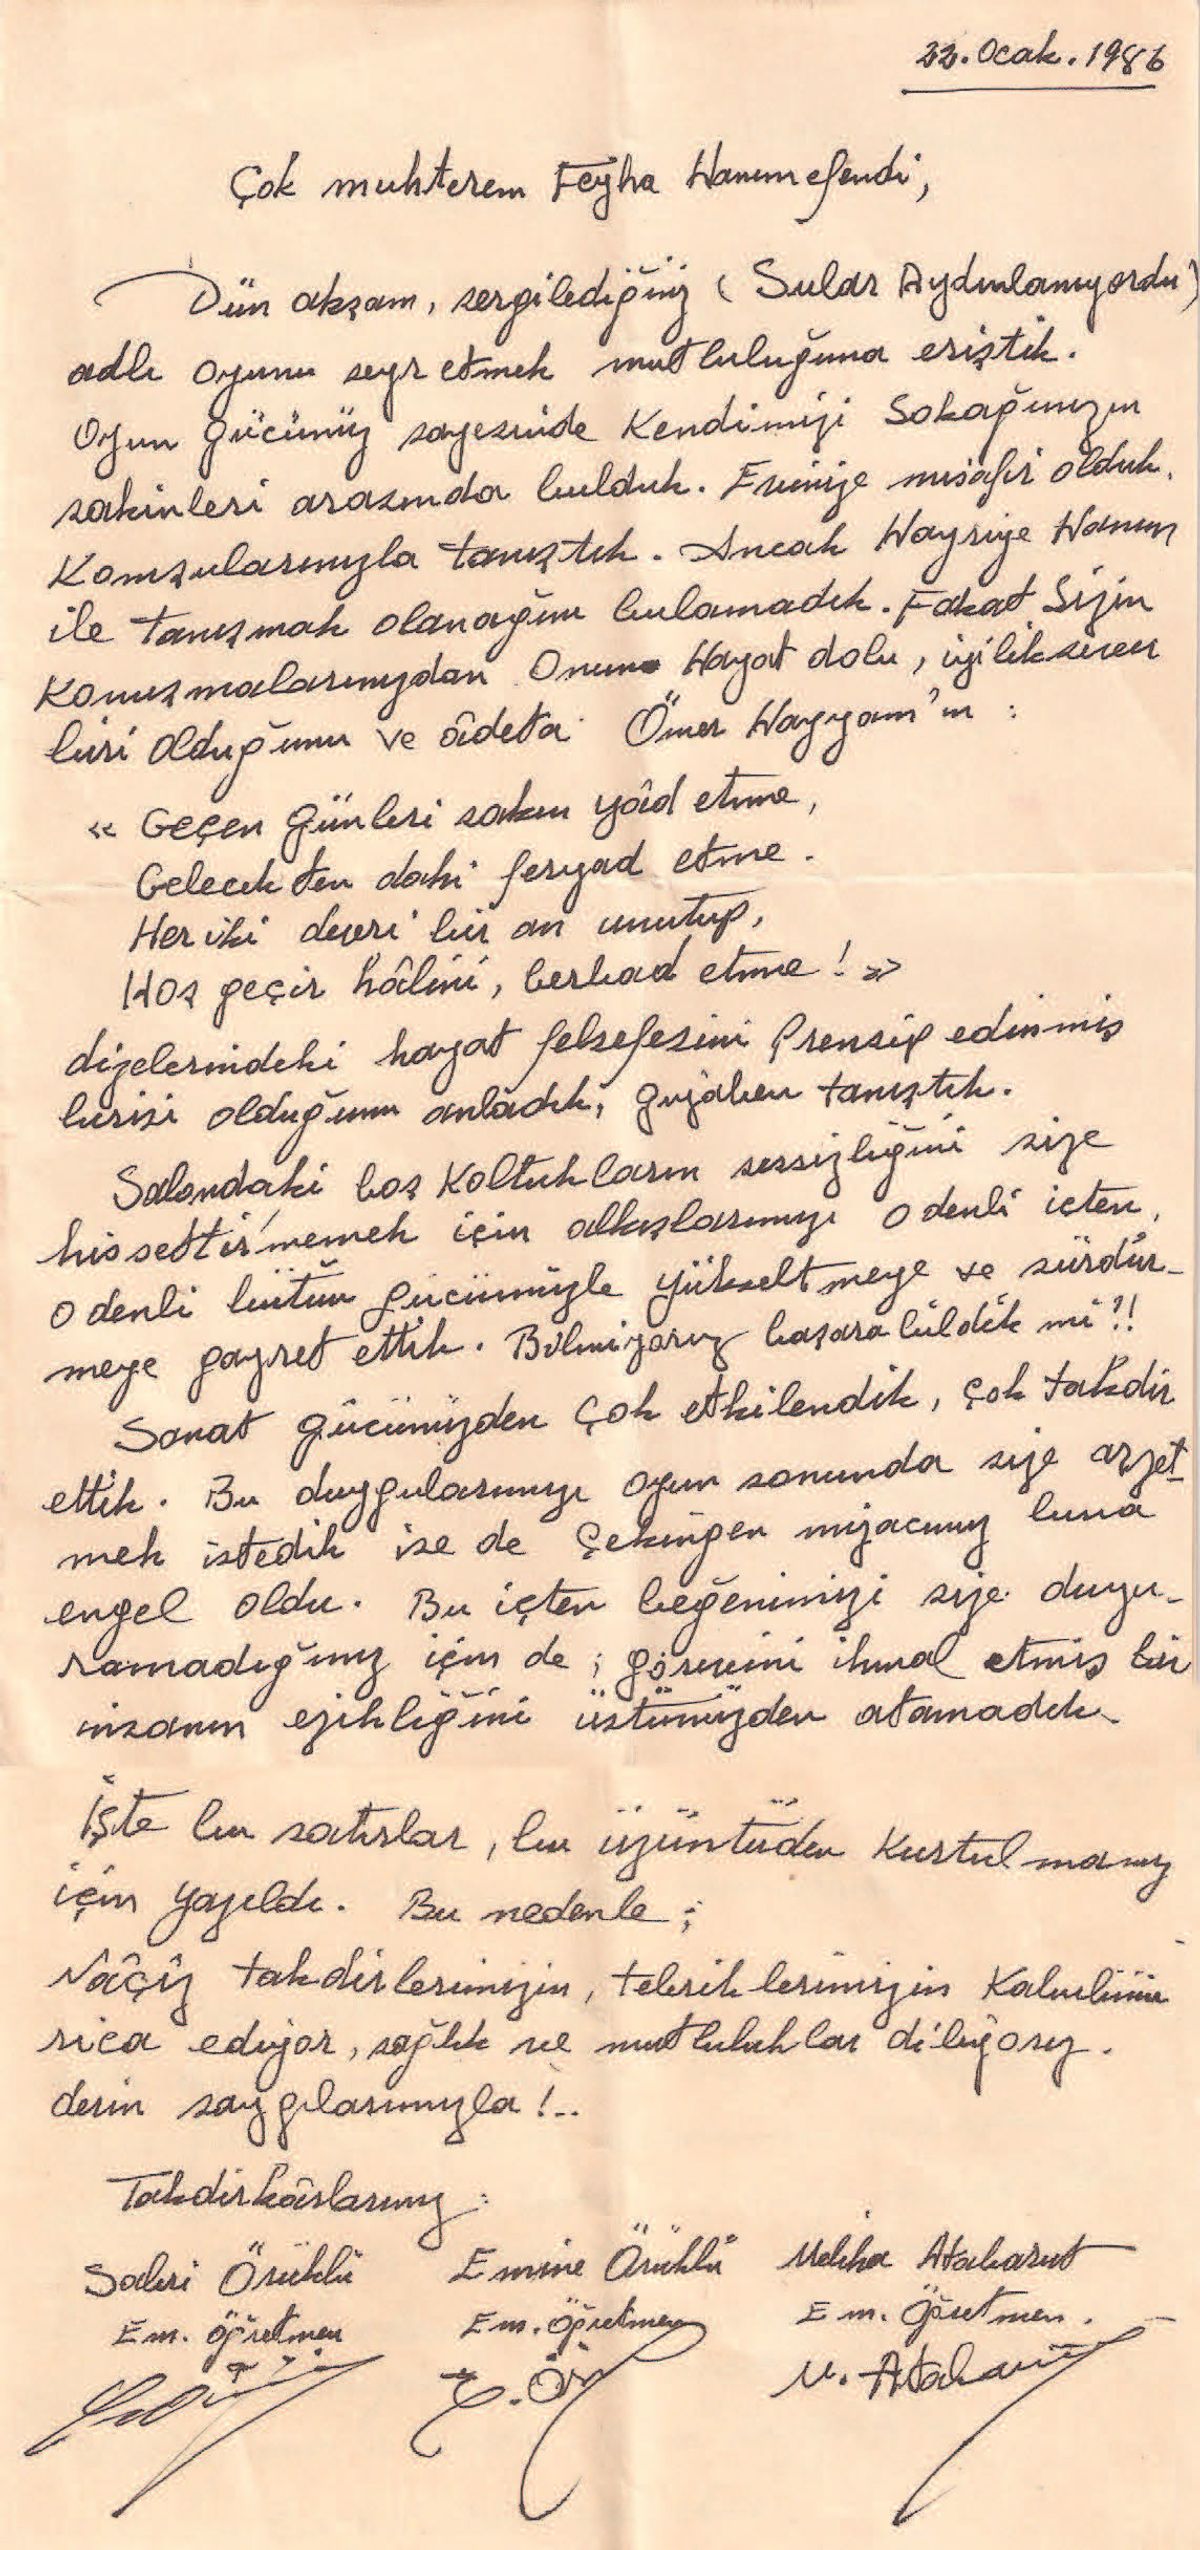 22.Ocak.1986
Çok muhterem Feyha Hanımefendi,
Dün akşam, sergilediğiniz (Sular Aydınlanıyordu)
adlı oyunu seyretmek mutluluğuna eriştik.
Oyun gücünüz sayesinde kendimizi sokağınızın
sakinleri arasında bulduk. Evinize misafir olduk.
Komşularınızla tanıştık. Ancak Hayriye Hanım
ile tanışmak olanağını bulamadık. Fakat Sizin
konuşmalarınızdan Onun Hayat dolu, iyiliksever
biri olduğunu ve âdeta Ömer Hayyam'ın :
« Geçen günleri sakın yâd etme,
Gelecekten dahi feryad etme.
Her iki devri bir an unutup,
Hoş geçir hâlini, berbad etme ! »
dizelerindeki hayat felsefesini prensip edinmiş
birisi olduğunu anladık, gıyaben tanıştık.
Salondaki boş koltukların sessizliğini size
hissettirmemek için alkışlarımızı o denli içten,
o denli bütün gücümüzle yükseltmeye ve sürdür-
meye gayret ettik. Bilmiyoruz başarabildik mi ?!
Sanat gücünüzden çok etkilendik, çok takdir
ettik. Bu duygularımızı oyun sonunda size arzet-
mek istedik ise de çekingen mizacımız buna
engel oldu. Bu içten beğenimizi size duyu-
ramadığımız için de ; görevini ihmal etmiş bir
insanın ezikliğini üstümüzden atamadık.
İşte bu satırlar, bu üzüntüden kurtulmamız
için yazıldı. Bu nedenle ;
Nâçiz takdirlerimizin, tebriklerimizin kabulünü
rica ediyor, sağlık ve mutluluklar diliyoruz.
derin saygılarımızla !..
Takdirkârlarınız :
Sabri Örüklü Emine Örüklü Meliha Atabarut
Em. Öğretmen Em. Öğretmen Em. Öğretmen.
E. Ör M. Atabarut